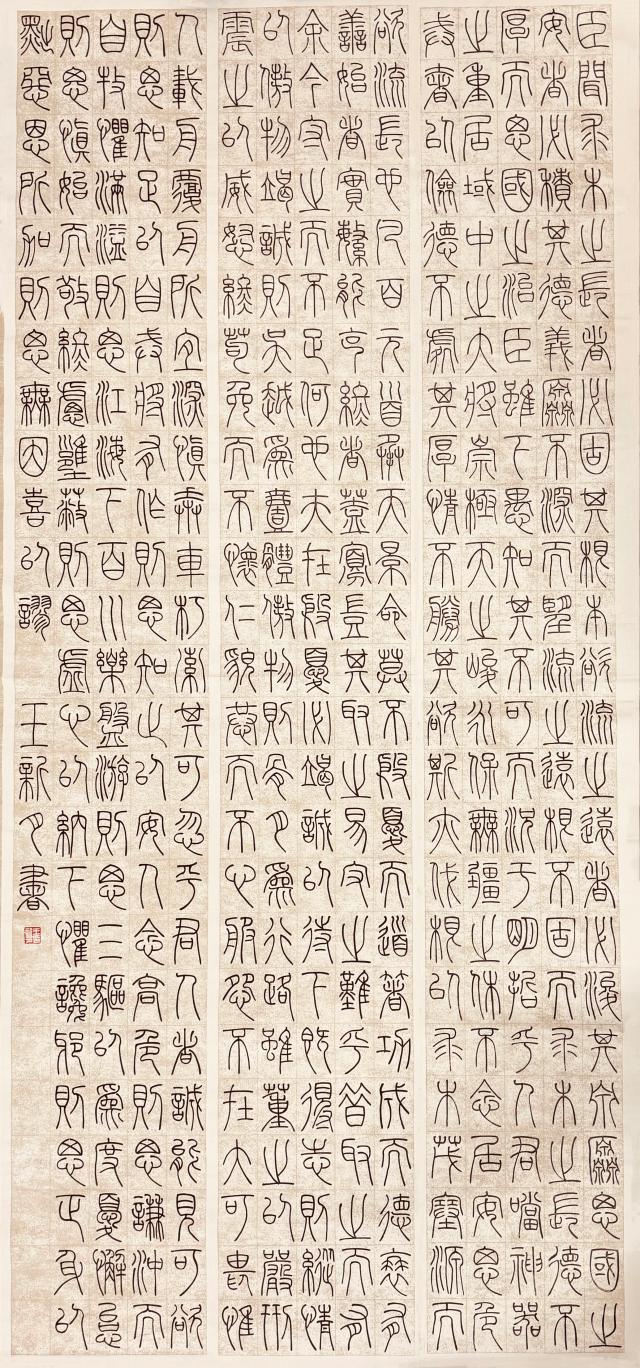 臣聞求木之長者必固其根本欲流之遠者必浚其泉源思國之
安者必積其德義源不深而望流之遠根不固而求木之長德不
厚而思國之治臣雖下愚知其不可而況于明哲乎人君當神器
之重居域中之大將崇極天之峻永保無疆之休不念居安思危
戒奢以儉德不處其厚情不勝其欲斯亦伐根以求木茂塞源而
欲流長也凡百元首承天景命莫不殷憂而道著功成而德衰有
善始者實繁能克終者蓋寡豈其取之易守之難乎昔取之而有
余今守之而不足何也夫在殷憂必竭誠以待下既得志則縱情
以傲物竭誠則吳越為壹體傲物則骨肉為行路雖董之以嚴刑
震之以威怒終苟免而不懷仁貌恭而不心服怨不在大可畏惟
人載舟覆舟所宜深慎奔車朽索其可忽乎君人者誠能見可欲
則思知足以自戒將有作則思知止以安人念高危則思謙沖而
自牧懼滿溢則思江海下百川樂盤游則思三驅以為度憂懈怠
則思慎始而敬終慮壅蔽則思虛心以納下懼讒邪則思正身以
黜惡恩所加則思無因喜以謬 王新書